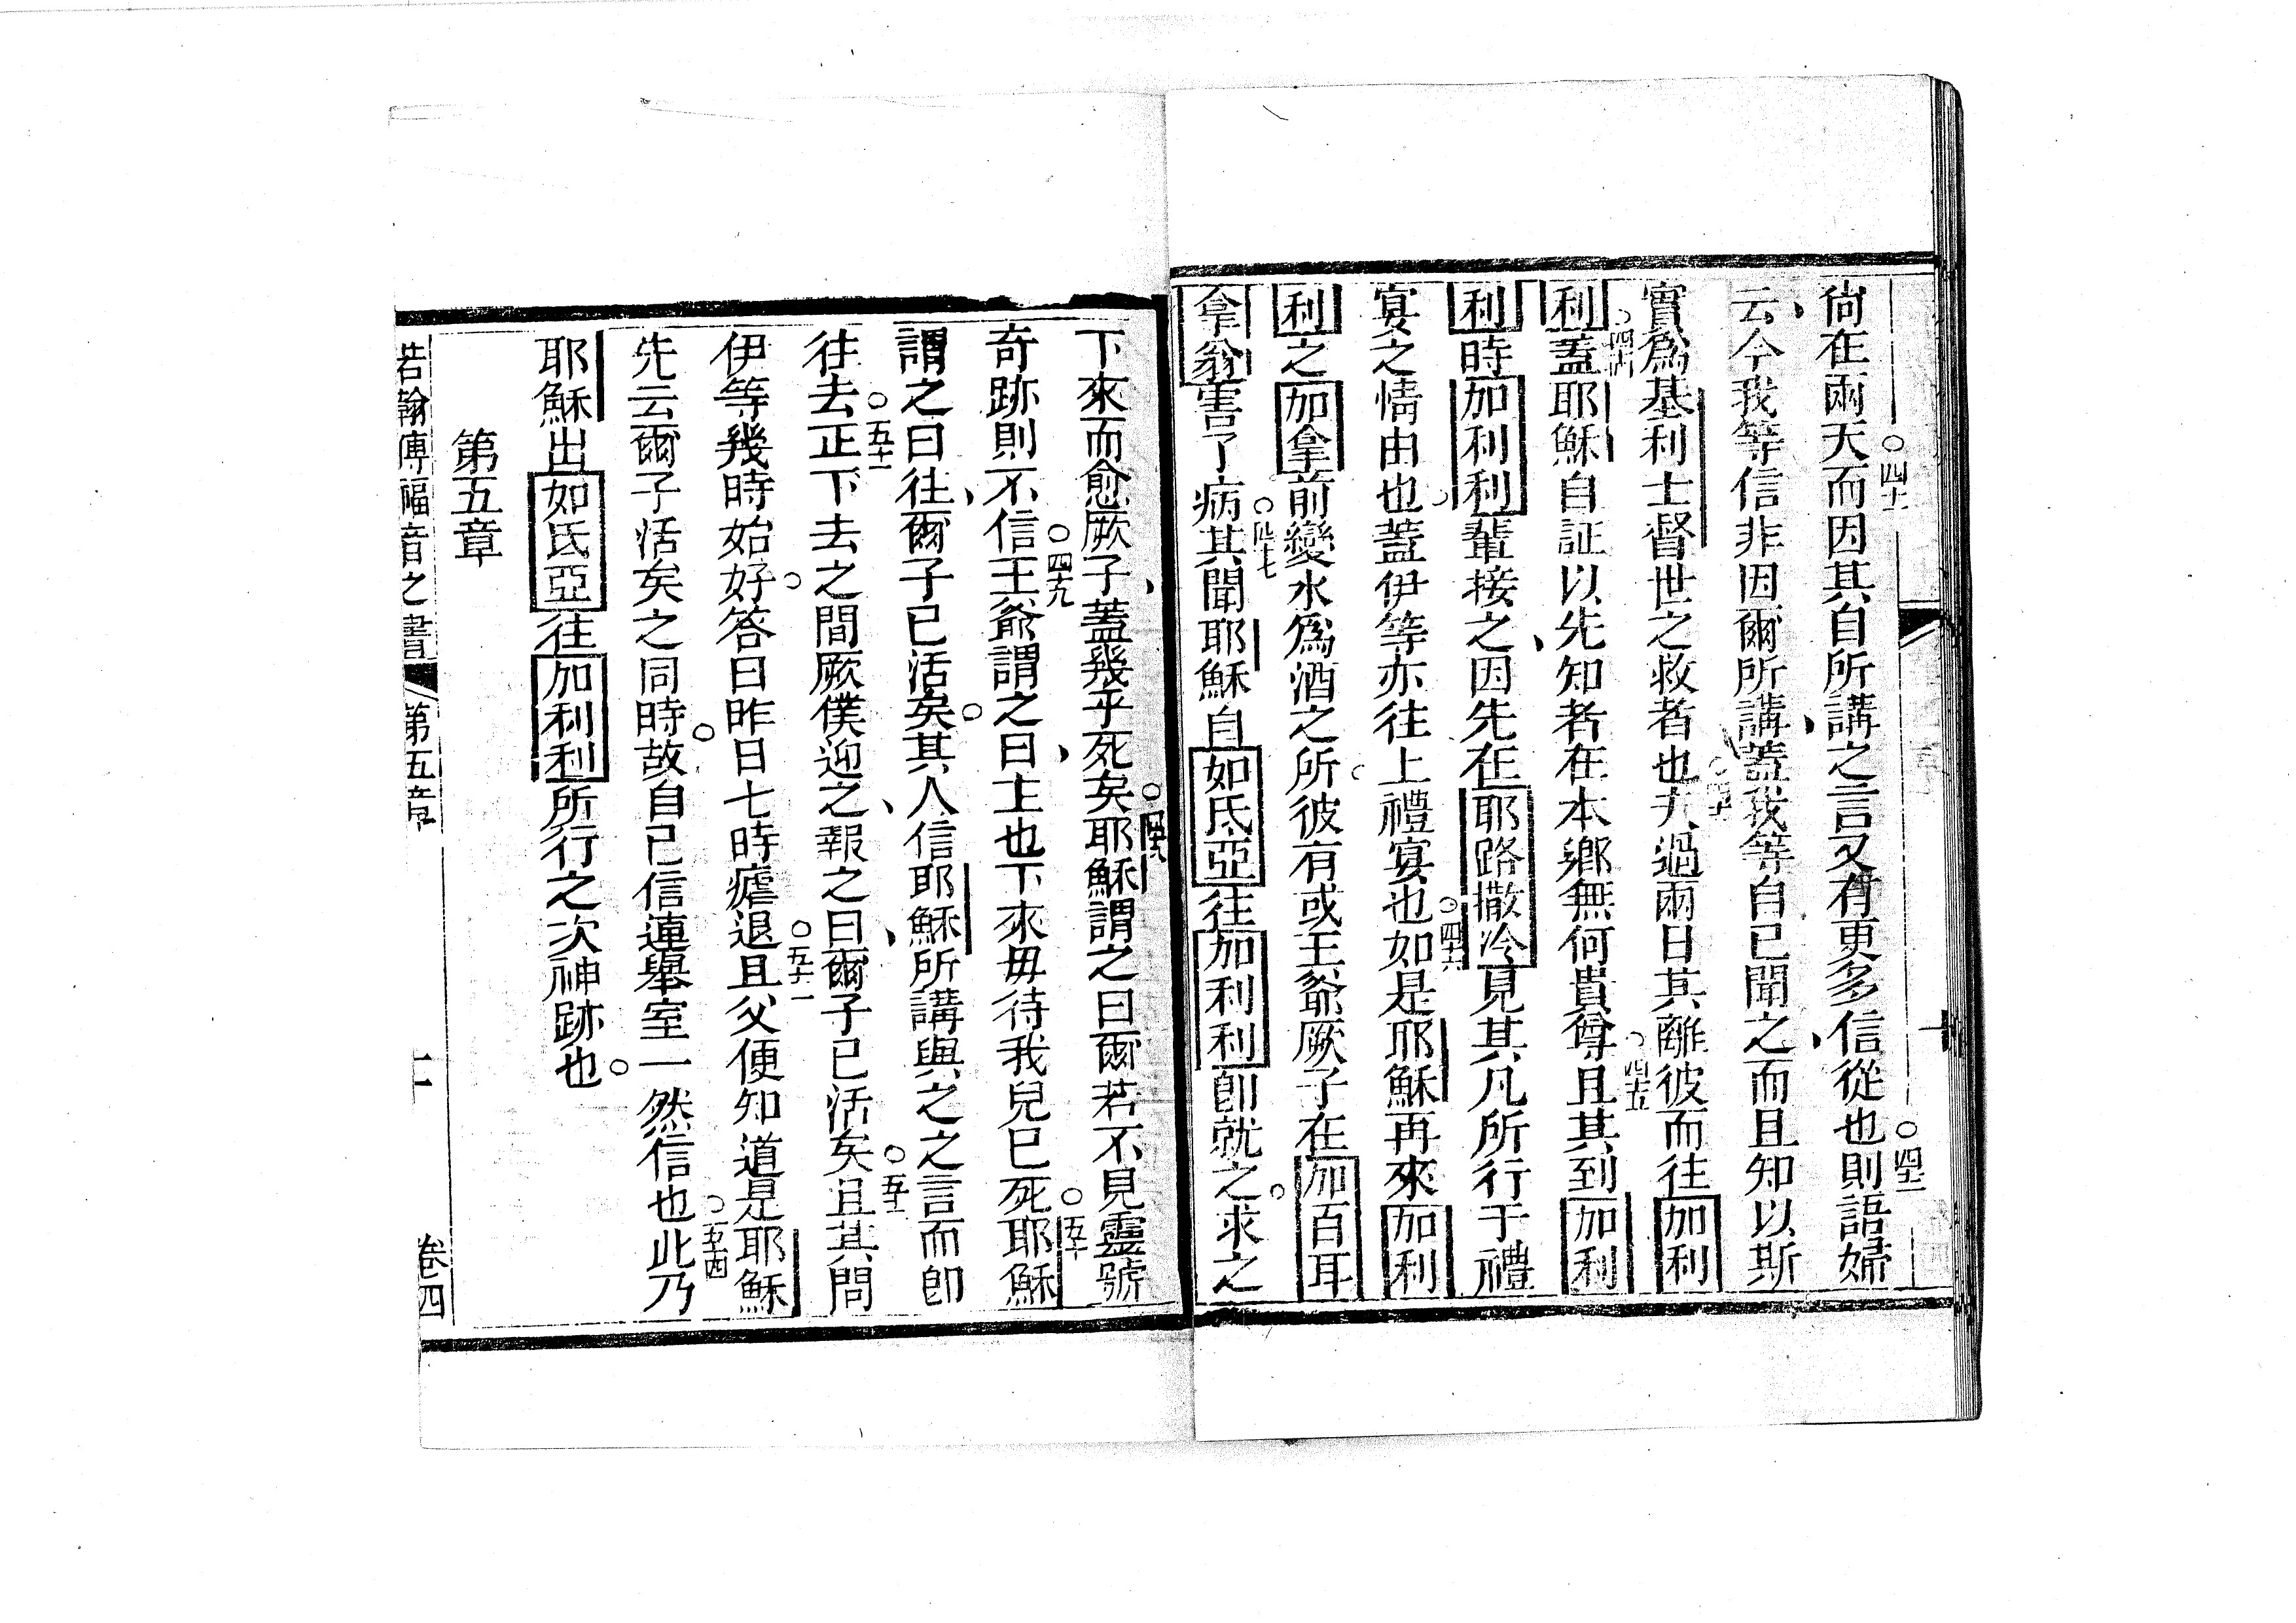 倘在兩天而因其自所講之言又有更多信從也則語婦
云今我等信非因爾所講蓋我等自已聞之而且知以斯
實爲基利士督世之救者也夫過兩日其離彼而往加利
利蓋耶穌自証以先知者在本鄉無何貴尊且其到加利
利時加利利輩接之因先在耶路撒冷見其凡所行于禮
宴之情由也蓋伊等亦往上禮宴也如是耶穌再來加利
利之加拿前變水爲酒之所彼有或王爺厥子在加百耳
拿翁害了病其聞耶穌自如氐亞往加利利卽就之求之
下來而愈厥子蓋幾乎死矣耶穌謂之曰爾若不見靈號
奇跡則不信王爺謂之曰主也下來毋待我兒已死耶穌
謂之曰往爾子已活矣其人信耶穌所講與之之言而卽
往去正下去之間厥僕迎之報之曰爾子已活矣且其問
伊等幾時始好答曰昨日七時瘧退且父便知道是耶穌
先云爾子活矣之同時故自已信連舉室一然信也此乃
耶穌出如氐亞往加利利所行之次神跡也
第五章
若翰傳福音之書 第五章 十一 卷四